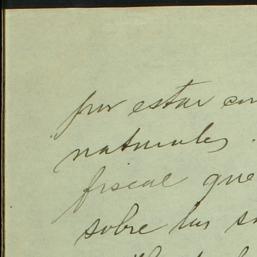 por estar
naturales.
fiscal que
sobre las